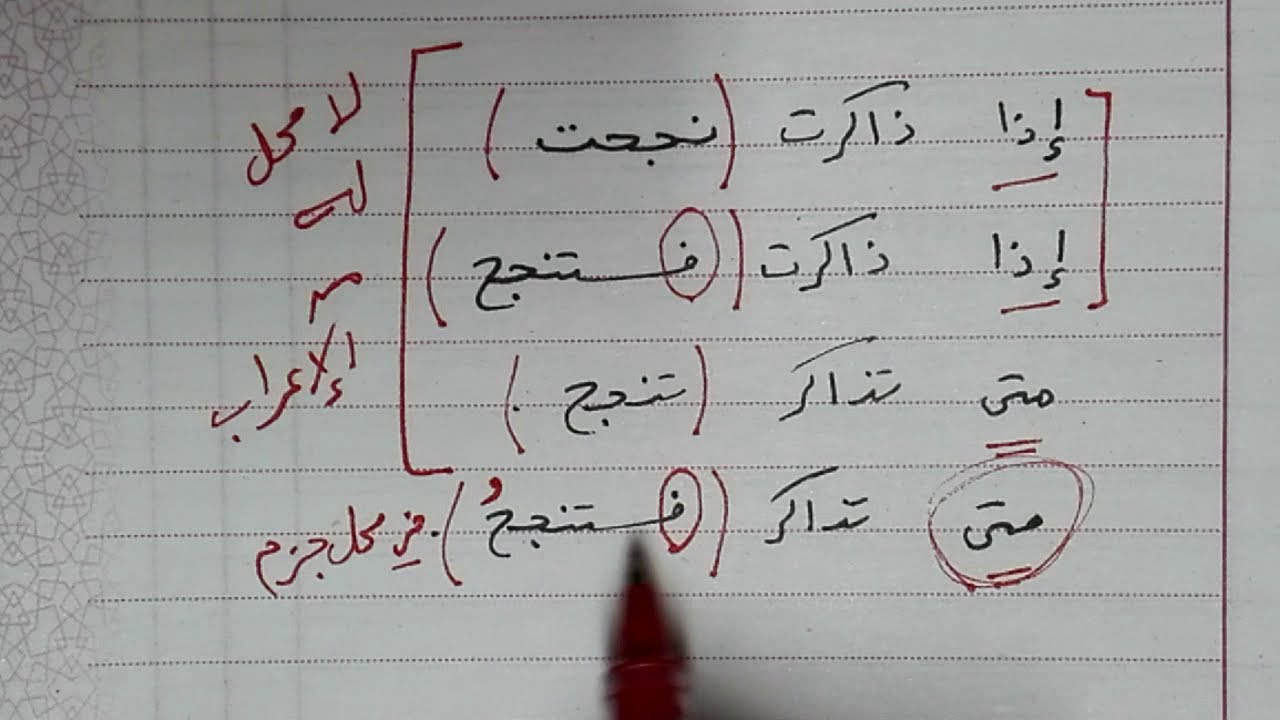 إذا ذاكرت (نجحت)
إذا ذاكرت (فستنجح)
متى تذاكر (تنجح).
متى تذاكر (فستنجحُ). في محل جزم
لا محل
له
من
الإعراب